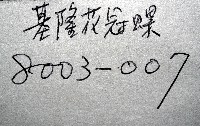 基隆花冠蝶
8003-007